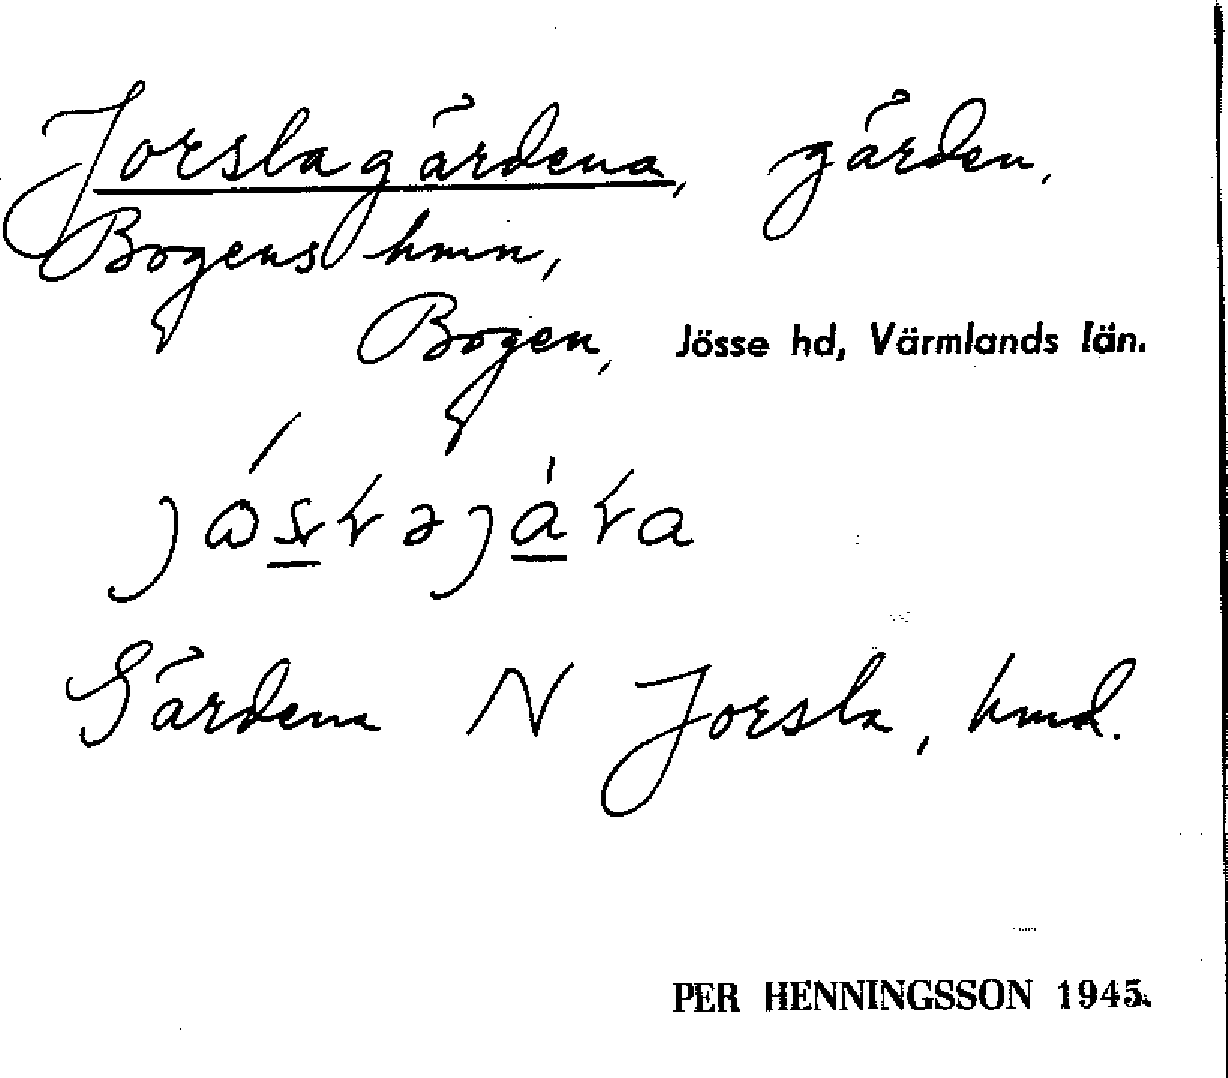 Jorslagärdena, gärden,
Bogens hmn,
Bogen, Jösse hd, Värmlands län.
Gärdena N Jorsla, hmd.
PER HENNINGSSON 1945.